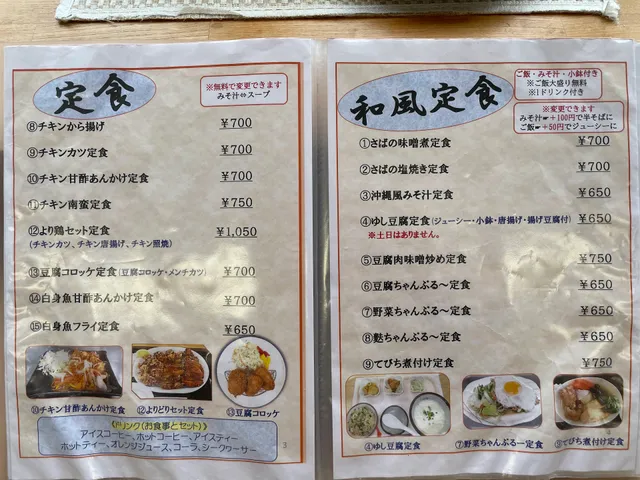 定食
※無料で変更できます
みそ汁⇔スープ
⑧チキンから揚げ ¥700
⑨チキンカツ定食 ¥700
⑩チキン甘酢あんかけ定食 ¥700
⑪チキン南蛮定食 ¥750
⑫より鶏セット定食 ¥1,050
(チキンカツ、チキン唐揚げ、チキン照焼)
⑬豆腐コロッケ定食(豆腐コロッケ・メンチカツ) ¥700
⑭白身魚甘酢あんかけ定食 ¥700
⑮白身魚フライ定食 ¥650
⑩チキン甘酢あんかけ定食
⑫よりどりセット定食
⑬豆腐コロッケ
《ドリンク(お食事とセット)》
アイスコーヒー、ホットコーヒー、アイスティー
ホットティー、オレンジジュース、コーラ、シークヮーサー
3
和風定食
ご飯・みそ汁・小鉢付き
※ご飯大盛り無料
※1ドリンク付き
※変更できます
みそ汁☛+100円で半そばに
ご飯☛+50円でジューシーに
①さばの味噌煮定食 ¥700
②さばの塩焼き定食 ¥700
③沖縄風みそ汁定食 ¥650
④ゆし豆腐定食(ジューシー・小鉢・唐揚げ・揚げ豆腐付) ¥650
※土日はありません。
⑤豆腐肉味噌炒め定食 ¥750
⑥豆腐ちゃんぷる〜定食 ¥650
⑦野菜ちゃんぷる〜定食 ¥650
⑧麩ちゃんぷる〜定食 ¥650
⑨てびち煮付け定食 ¥750
④ゆし豆腐定食
⑦野菜ちゃんぷるー定食
⑨てびち煮付け定食